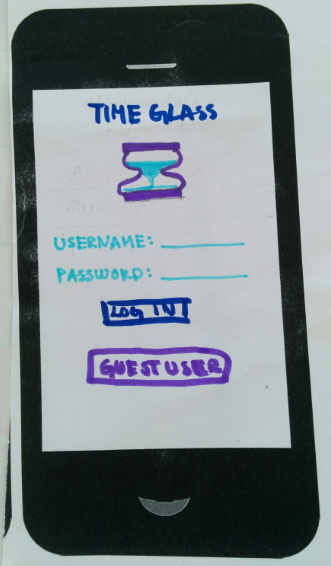 TIME GLASS
USERNAME:
PASSWORD:
LOG IN
GUEST USER